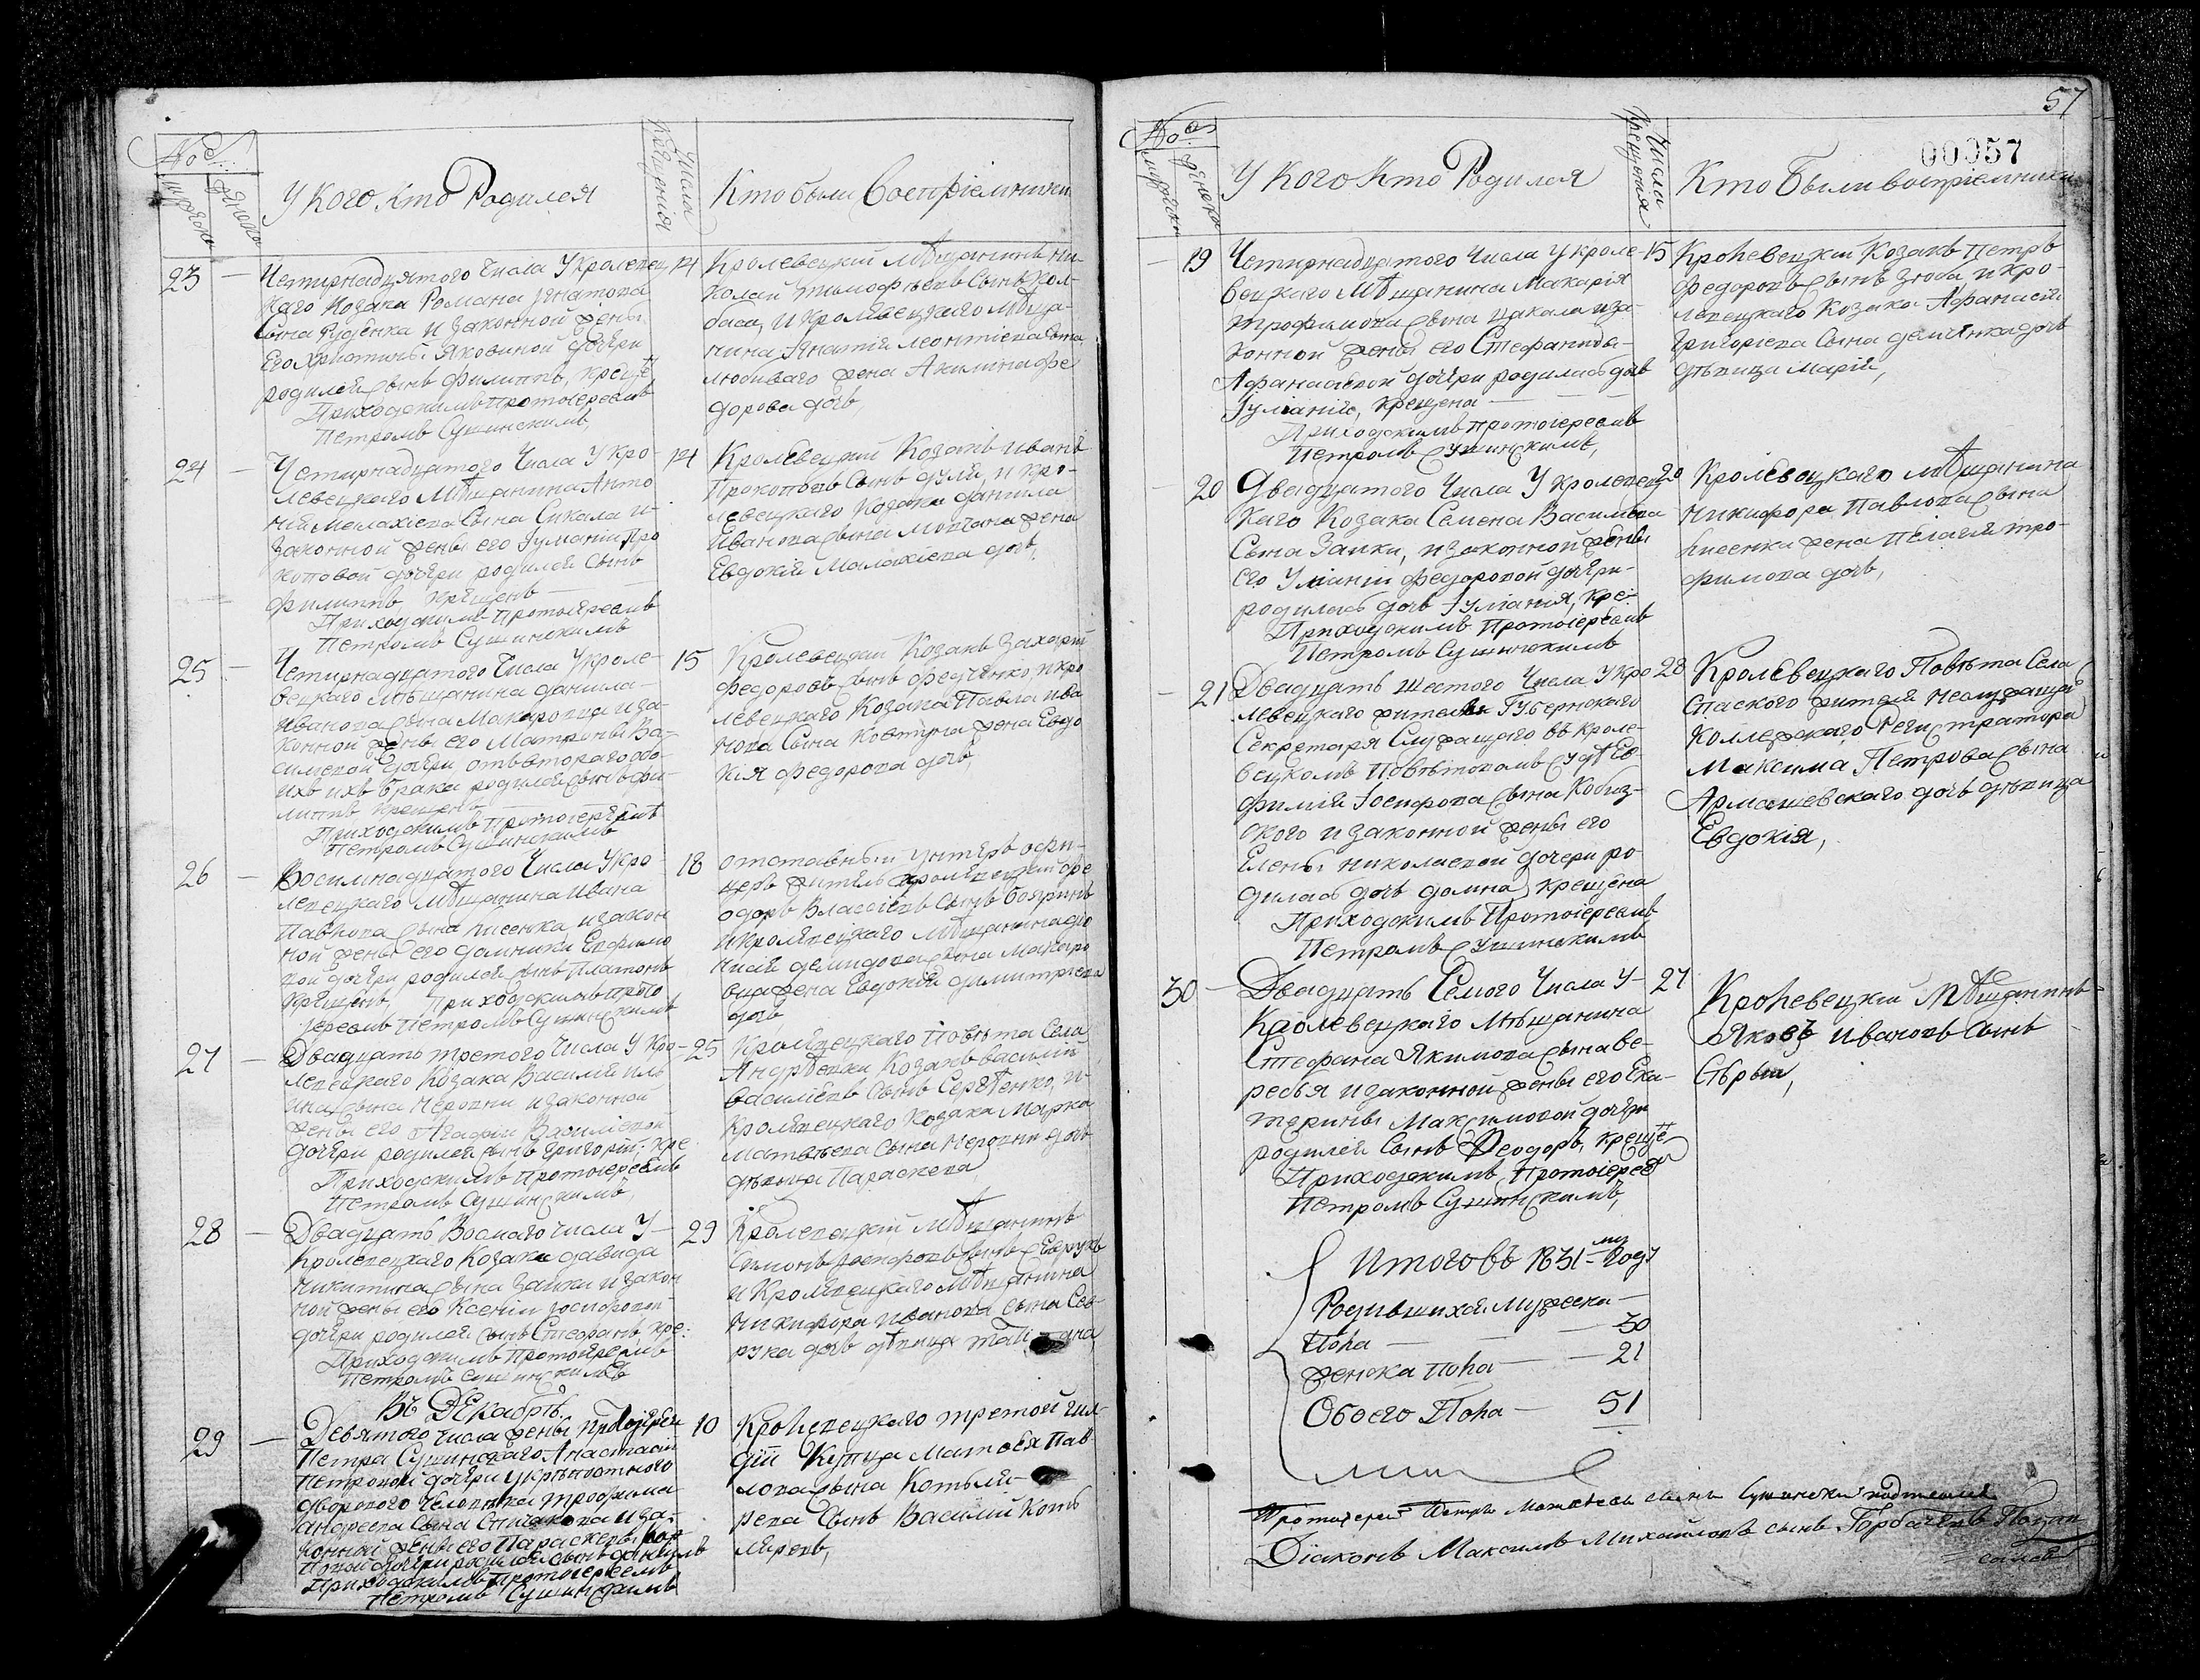 №
мужескъ
женскъ
У Кого, кто Родился
Числа
крещенія
Кто были Воспріемники
23
Четирнадцятого Числа У Кролевец
каго Козака Романа Игнатова
Сына и Законной жены
Его Христины Яковиной дочери
родился сынъ Филиппъ, креще
Приходскимъ Протоіереемъ
Петромъ Сушинскимъ,
14
Кролевецкій Мѣщанинъ Ни-
колай Тимофѣевъ Сынъ Кол-
баса, и Кролевецкого Мѣща-
нина Игнатія Леонтіева сына
жена Акилина Фе
дорова дочь,
24
Четирнадцатого Числа У Кро-
левецкаго Мѣщанина Анто
нія Малахіева Сына Сикала и
Законной жены его Гуліаніи Про
коповой дочери родился Сынъ
Филиппъ, крещенъ
Приходскимъ Протоіереемъ
Петромъ Сушинскимъ
14
Кролевецкій Козакъ Иванъ
Прокоповъ Сынъ Дуля, и Кро-
левецкаго Козака Данила
Иванова сына Мовчана жена
Евдокія Малахіева дочь,
25
Четирнадцатого Числа У Кроле-
вецкаго Мѣщанина Данила
Иванова сына Макаровца и за-
конной жены его Матроны Ва-
силевой дочери отъ второго обо-
ихъ ихъ брака родился сынъ Фи-
липпъ крещенъ
Приходскимъ Протоіереемъ
Петромъ Сушинскимъ
15
Кролевецкій Козакъ Захарій
Федоровъ сынъ Федченко, и Кро
левецкаго Козака Павла Ива
нова Сына Ковтуна жена Евдо
кія Федорова дочь,
26
Восимнадцатого Числа У Кро-
левецкаго Мѣщанина Ивана
Павлова сына Лисенка, и закон
ной жены его Домники Евфимо
вой дочери родился сынъ Платонъ
крещенъ, Приходскимъ Прото
іереемъ Петромъ Сушинскимъ
18
Отставный Унтеръ офи-
церъ житель Кролевецкій Фе
одоръ Власіевъ Сынъ Бояринъ
и Кролевецкаго Мѣщанина Дио
нисія Демидова сына Макаро
вца жена Евдокія Димитріева
дочь
27
Двадцать третого Числа У Кро-
левецкаго Козака Василія Иль
ина сына Неровни и законной
жены его Агафіи Василіевой
дочери родился сынъ Григорій, кре
Приходскимъ Протоіереемъ
Петромъ Сушинскимъ,
25
Кролевецкаго Повѣта Села
Андрѣевки Козакъ Василій
Василіевъ Сынъ Сергѣенко, и
Кролевецкаго Козака Марка
Матвѣева Сына Неровни дочь
дѣвица Параскева
28
Двадцать Восмаго числа У
Кролевецкаго Козака Давида
Никитина сына Заики и закон
ной жены его Ксеніи Іосифовой
дочери родился сынъ Стефанъ, кре:
Приходскимъ Протоіереемъ
Петромъ Сушинскимъ
29
Кролевецкій Мѣщанинъ
Симонъ Іосифовъ сынъ Севрукъ
и Кролевецкаго Мѣщанина
Никифора Иванова сына Сев-
рука дочь дѣвица Татіяна,
Въ Декабрѣ
29
Девятого числа жены Протоіерея
Петра Сушинскаго Анастасіи
Петровой дочери у крѣпостного
дворового человѣка Трофима
Андреева Сына и за-
конной жены его Параскевы
дочери родился сынъ
Приходскимъ Протоіереемъ
Петромъ Сушинскимъ
10
Кролевецкаго третой гил-
діи Купца Матвѣя Пав
лова сына Котля-
рева Сынъ Василій Котъ
ляревъ,
57
00057
№
мужескъ
женскъ
У Кого Кто Родился
Числа
Крещенія
Кто Были воспріемники
19
Четирнадцатого Числа У Кроле-
вецкаго Мѣщанина Макарія
Трофимова сына Цакала и за-
конной жены его Стефаниды
Афанасіевой дочери родилась дочь
Іуліанія, крещена
Приходскимъ Протоіереемъ
Петромъ Сушинскимъ,
15
Кролевецкій Козакъ Петръ
Федоровъ сынъ Зюба, и Кро-
левецкаго Козака Афанасія
Григоріева Сына Демянка дочь
дѣвица Марія,
20
Двадцатого Числа У Кролевец
каго Козака Семена Василіева
Сына Заики, и законной жены
его Уліаніи Федоровой дочери
родилась дочь Іуліанія, кре:
Приходскимъ Протоіереемъ
Петромъ Сушинскимъ
20
Кролевецкаго Мѣщанина
Никифора Павлова сына
Лисенка жена Пелагія Тро-
фимова дочь,
21
Двадцать Шестого Числа У Кро
левецкаго жителя Губернского
Секретаря Служащаго въ Кроле-
вецкомъ Повѣтовомъ Судѣ Ев-
фимія Іосифова сына Кобиз-
ского и законной жены его
Елены Николаевой дочери ро
дилась дочь Домна, крещена
Приходскимъ Протоіереемъ
Петромъ Сушинскимъ
28
Кролевецкаго Повѣта Села
Спаского жителя неслужащ
Коллежскаго Регистратора
Максима Петрова сына
Армашевскаго дочь дѣвица
Евдокія,
30
Двадцать Семого Числа У
Кролевецкаго Мѣщанина
Стефана Якимова сына Ве-
ребья и законной жены его Ека-
терины Максимовой дочери
родился Сынъ Феодоръ, креще
Приходскимъ, Протоіерее
Петромъ Сушинскимъ,
27
Кролевецкій Мѣщанинъ
Яковъ Ивановъ Сынъ
Сѣрый,
Итого въ 1831-му Году
Родившихся Мужеска
Пола — 30
женска пола — 21
Обоего Пола — 51
Протоіерей Петръ Матвѣевъ сынъ Сушински
Діаконъ Максимъ Михайловъ сынъ Горбачевъ Подпи
салъ